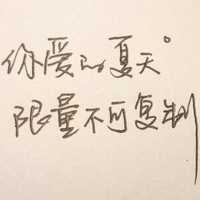 你爱的夏天°
限量不可复制